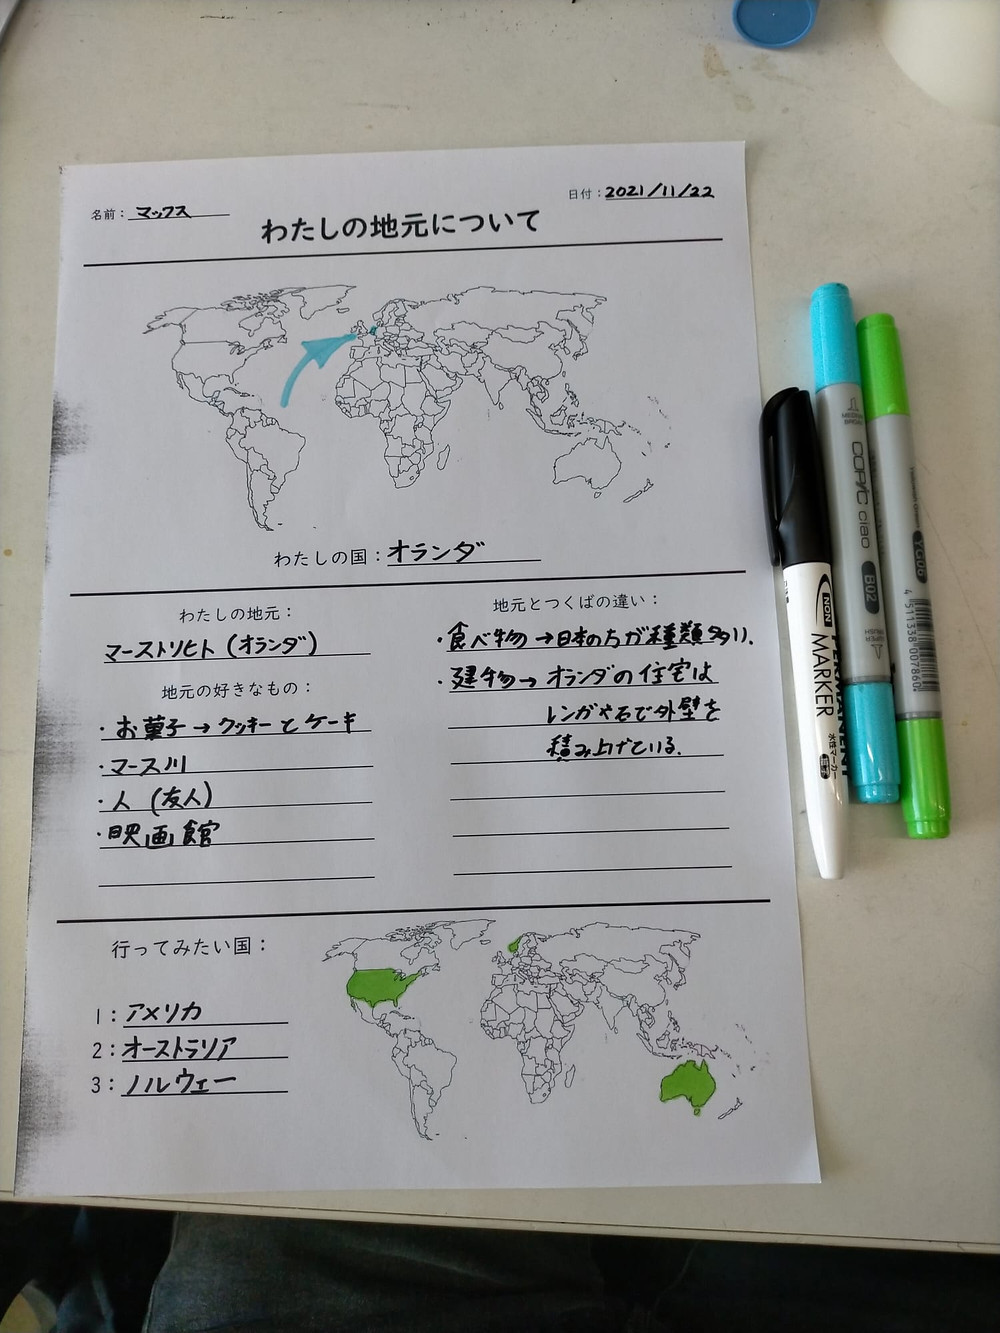 名前：マックス
日付：2021/11/22
わたしの地元について
わたしの国：オランダ
わたしの地元：
マーストリヒト（オランダ）
地元の好きなもの：
・お菓子→クッキーとケーキ
・マース川
・人（友人）
・映画館
地元とつくばの違い：
・食べ物→日本の方が種類多い.
・建物→オランダの住宅は
レンガや石で外壁を
積み上げている.
行ってみたい国：
1：アメリカ
2：オーストラリア
3：ノルウェー
NON
PERMANENT
MARKER
水性マーカー
MEDIUM
BROAD
COPIC ciao
B02
SUPER
BRUSH
YG06
4 511338 007860